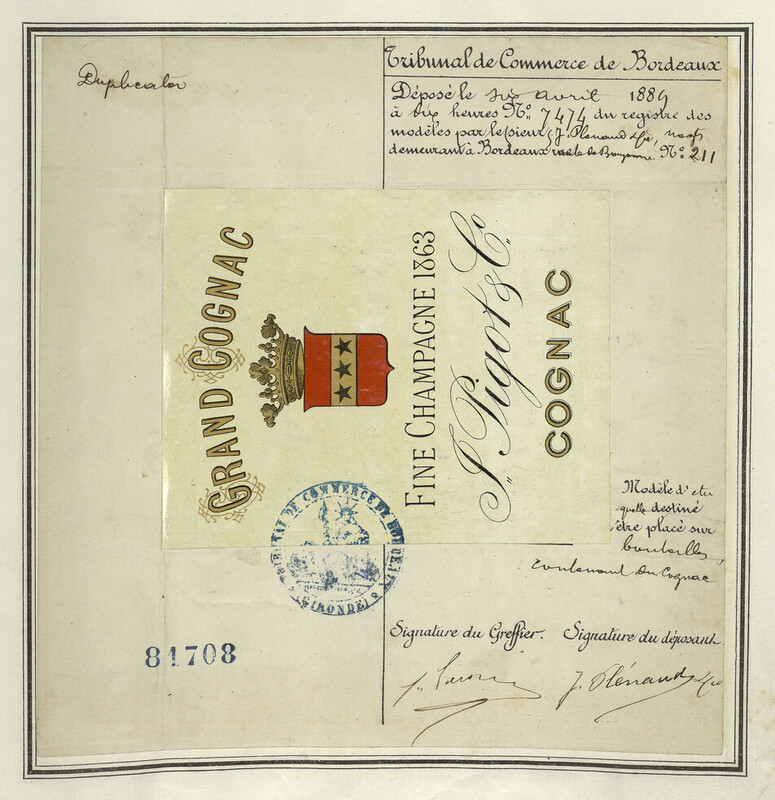 Duplicata
Tribunal de Commerce de Bordeaux
Déposé le six avril 1889
à six heures Nº 7474 du registre des
modèles par le sieur J. Plénaud & Cie,
demeurant à Bordeaux route de Bayonne Nº 211
GRAND COGNAC
FINE CHAMPAGNE 1863
J. Pigot & Co.
COGNAC
TRIBUNAL DE COMMERCE DE BORDEAUX
(GIRONDE)
Modèle d'éti
quette destiné
être placé sur
bouteilles
contenant du Cognac
81708
Signature du Greffier. Signature du déposant.
J. Plénaud & Cie